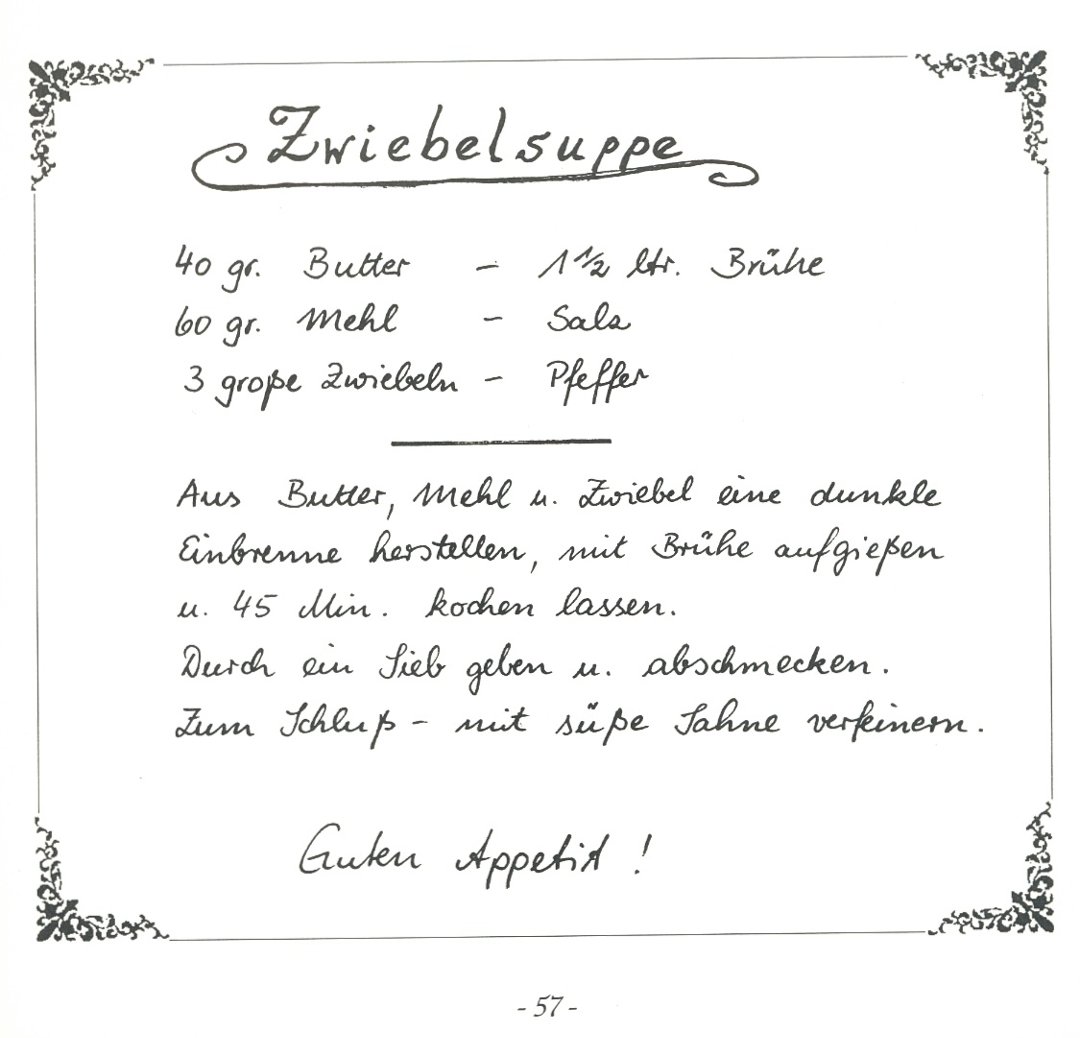 Zwiebelsuppe
40 gr. Butter - 1 1/2 ltr. Brühe
60 gr. Mehl - Salz
3 große Zwiebeln - Pfeffer
Aus Butter, Mehl u. Zwiebel eine dunkle
Einbrenne herstellen, mit Brühe aufgießen
u. 45 Min. kochen lassen.
Durch ein Sieb geben u. abschmecken.
Zum Schluß - mit süße Sahne verfeinern.
Guten Appetit!
- 57 -